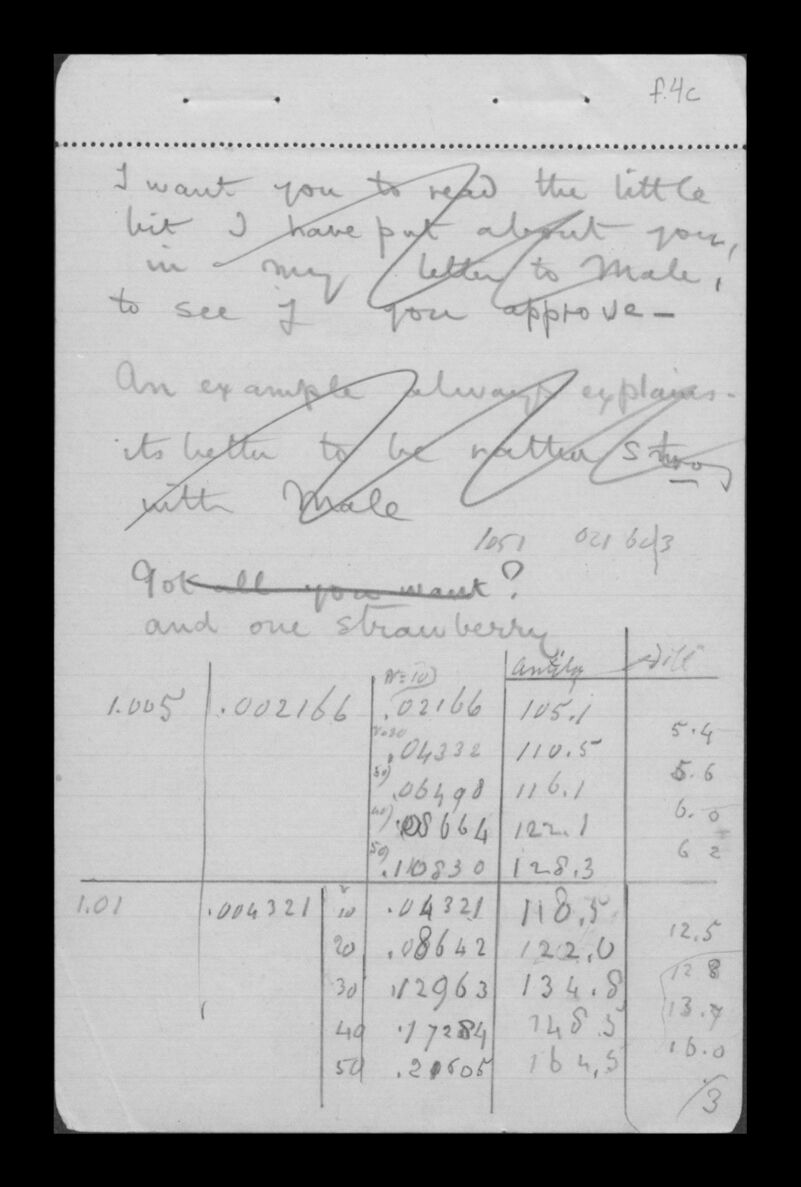 f.4c
I want you to read the little
bit I have put about you,
in my letter to Male,
to see if you approve –
An example always explains.
its better to be rather strong
with Male
1051
Got all you want?
and one strawberry
N=10) Antilog Diff
1.005 .002166 .02166 105.1
5.4
N=20 .04332 110.5
5.6
30) .06498 116.1
6.0
40) .08664 122.1
6 2
50) .10830 128.3
1.01 .004321 10 .04321 110.5
12.5
20 .08642 122.0
12 8
30 .12963 134.8
13.7
40 .17284 148.5
16.0
50 .21605 164.5
/3